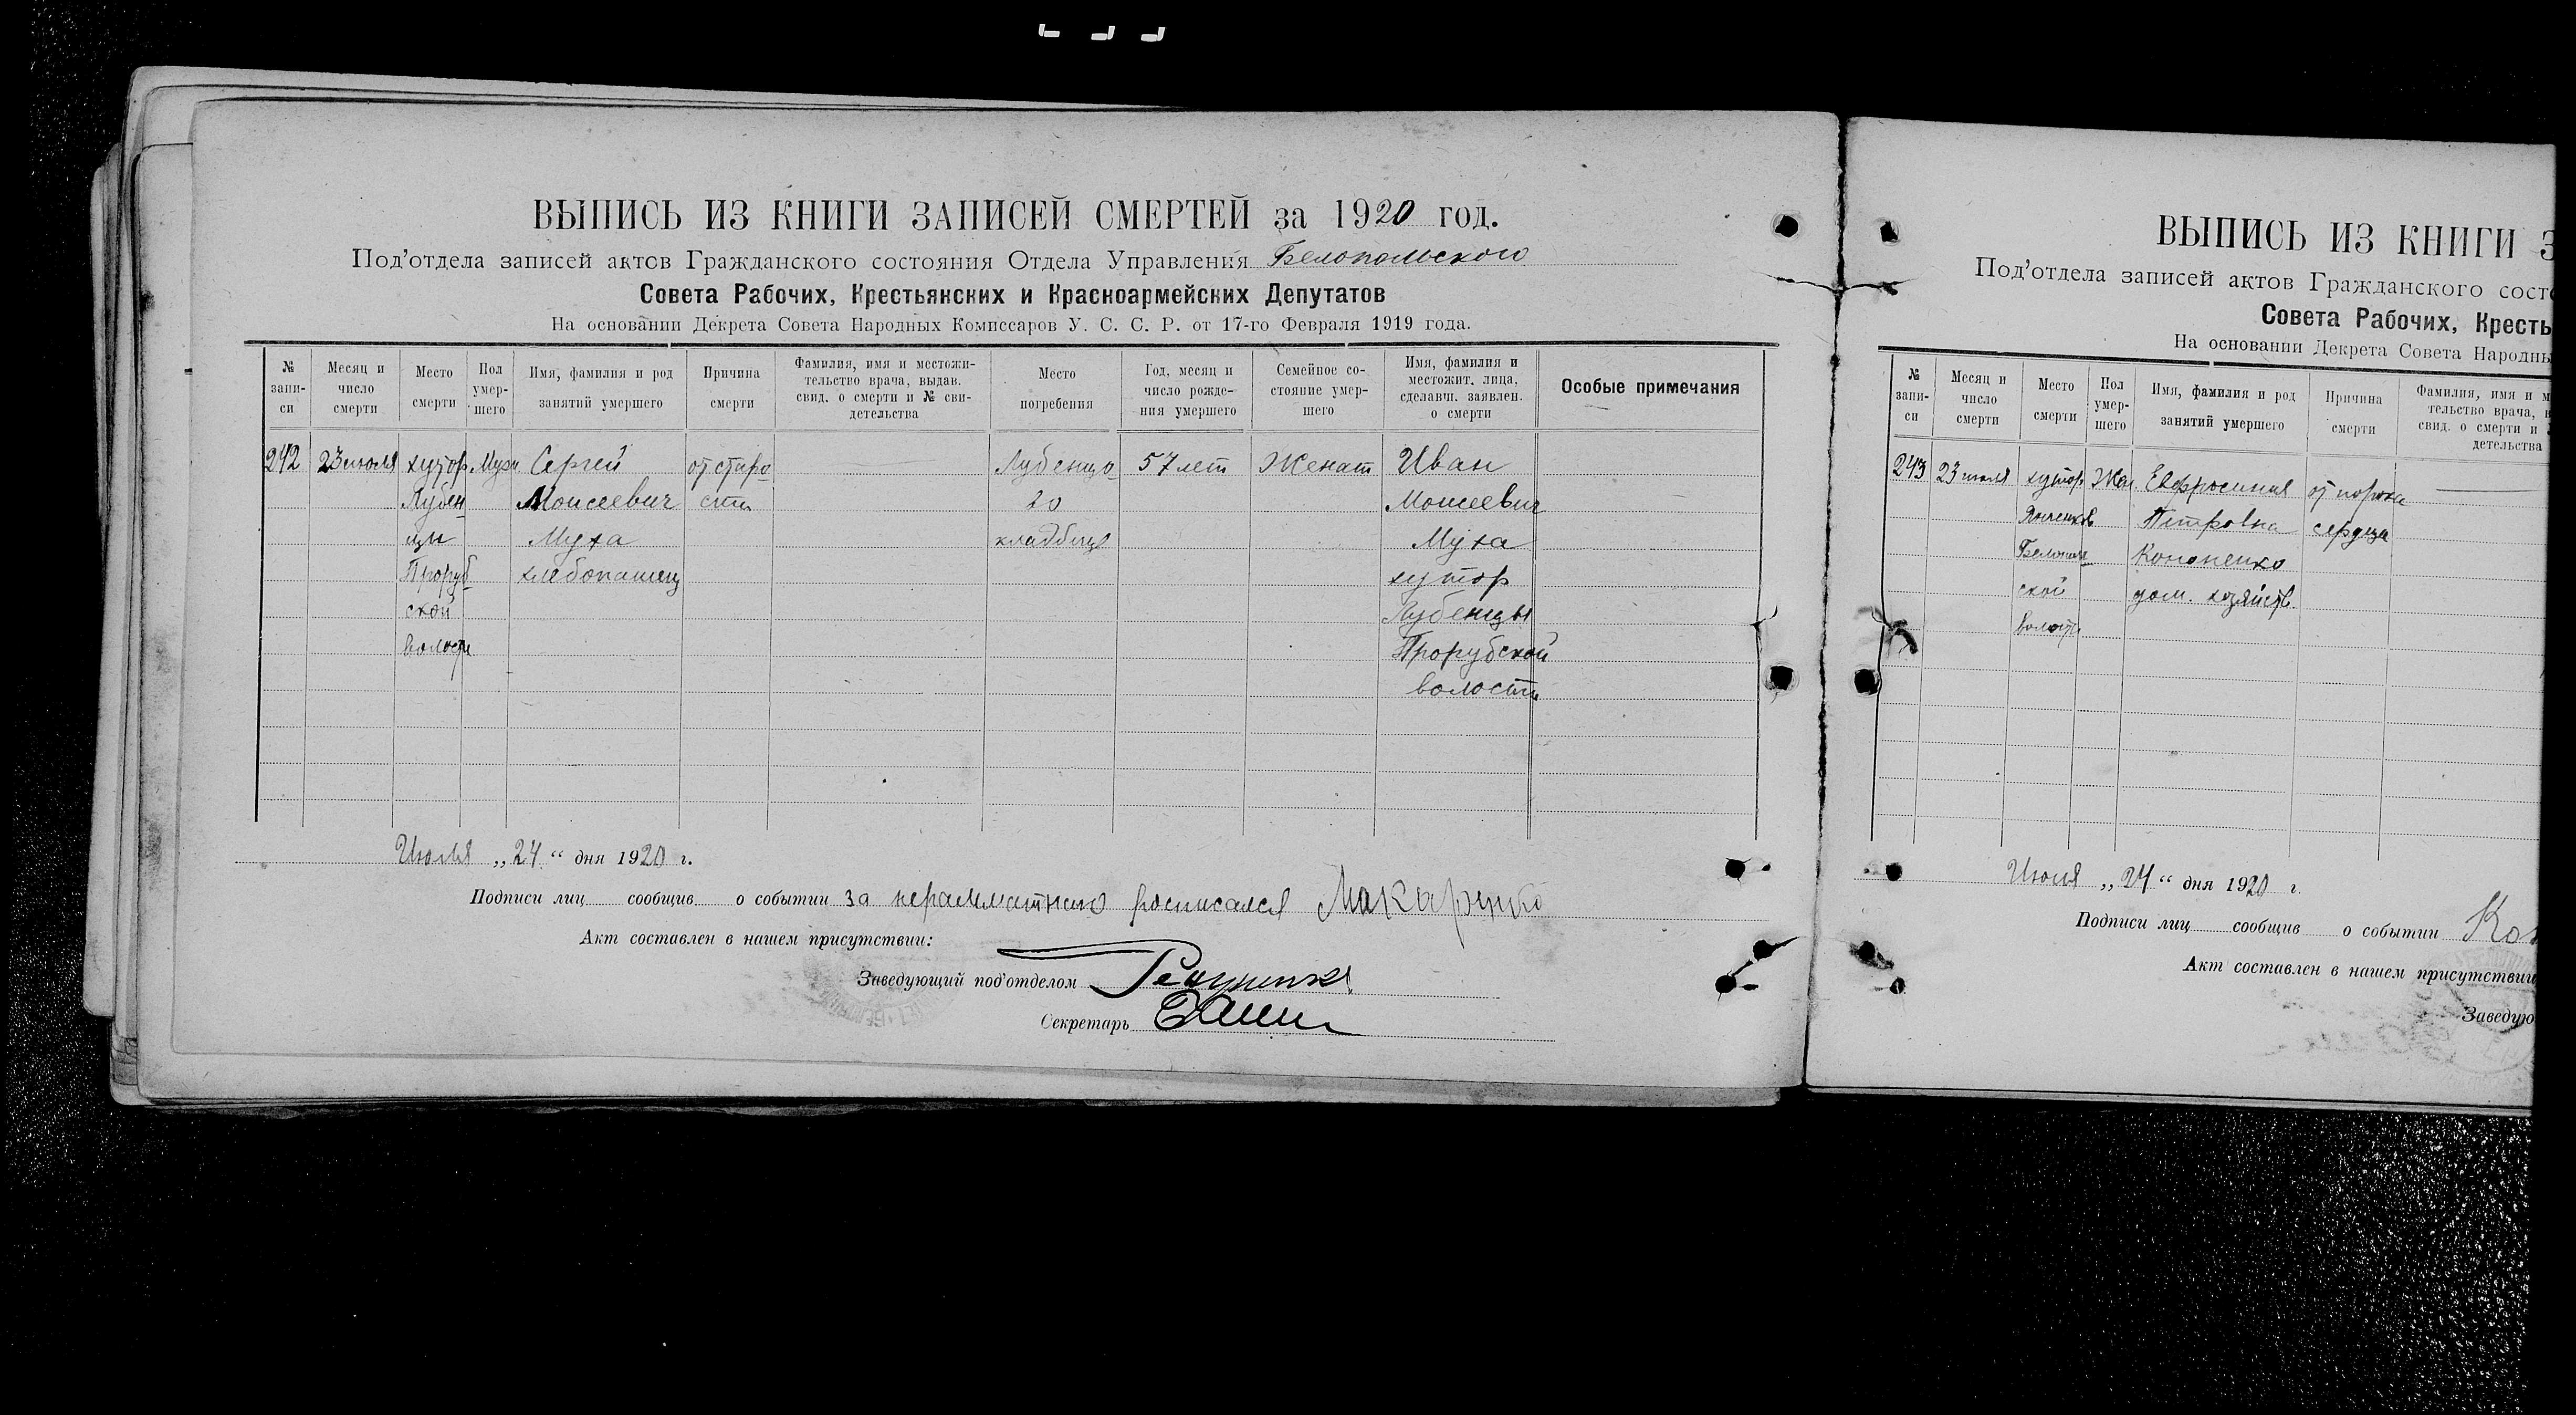 ВЫПИСЬ ИЗ КНИГИ ЗАПИСЕЙ СМЕРТЕЙ за 1920 год.
Под'отдела записей актов Гражданского состояния Отдела Управления Белопольского
Совета Рабочих, Крестьянских и Красноармейских Депутатов
На основании Декрета Совета Народных Комиссаров У. С. С. Р. от 17-го Февраля 1919 года.
№ запи-си
Месяц и число смерти
Место смерти
Пол умер-шего
Имя, фамилия и род занятий умершего
Причина смерти
Фамилия, имя и местожи-тельство врача, выдав. свид. о смерти и № сви-детельства
Место погребения
Год, месяц и число рожде-ния умершего
Семейное со-стояние умер-шего
Имя, фамилия и местожит. лица, сделавш. заявлен. о смерти
Особые примечания
242 23 июля хутор Муж Сергей от старо Лубенцо 57 лет Женат Иван
Лубен- Моисеевич сти го Моисеевич
цы Муха кладбище Муха
Проруб- хлебопашец хутор
ской Лубенцы
волости Прорубской
волости
Июля „24“ дня 1920 г.
Подписи лиц сообщив о событии за неграмотного росписался Макаренко
Акт составлен в нашем присутствии:
Заведующий под'отделом
Секретарь
ВЫПИСЬ ИЗ КНИГИ З
Под'отдела записей актов Гражданского сост
Совета Рабочих, Кресть
На основании Декрета Совета Народны
№ запи-си
Месяц и число смерти
Место смерти
Пол умер-шего
Имя, фамилия и род занятий умершего
Причина смерти
Фамилия, имя и м
тельство врача, в
свид. о смерти и
детельства
243 23 июля хутор Жен Евфросиния от порока
Петровна сердца
Белополь Кононенко
ской дом. хозяйств
волости
Июля „24“ дня 1920 г.
Подписи лиц сообщив о событии Кон
Акт составлен в нашем присутствии
Заведую